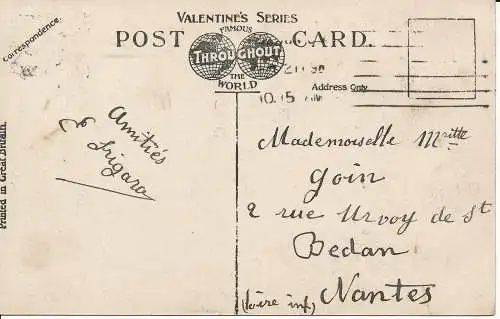 VALENTINE'S SERIES
FAMOUS
POST CARD.
THROUGHOUT
THE
WORLD
Correspondence.
Address Only
10.15
Printed in Great Britain.
Amitiés
Mademoiselle Mritte
Goin
2 rue Urvoy de St
Bedan
(Loire inf) Nantes